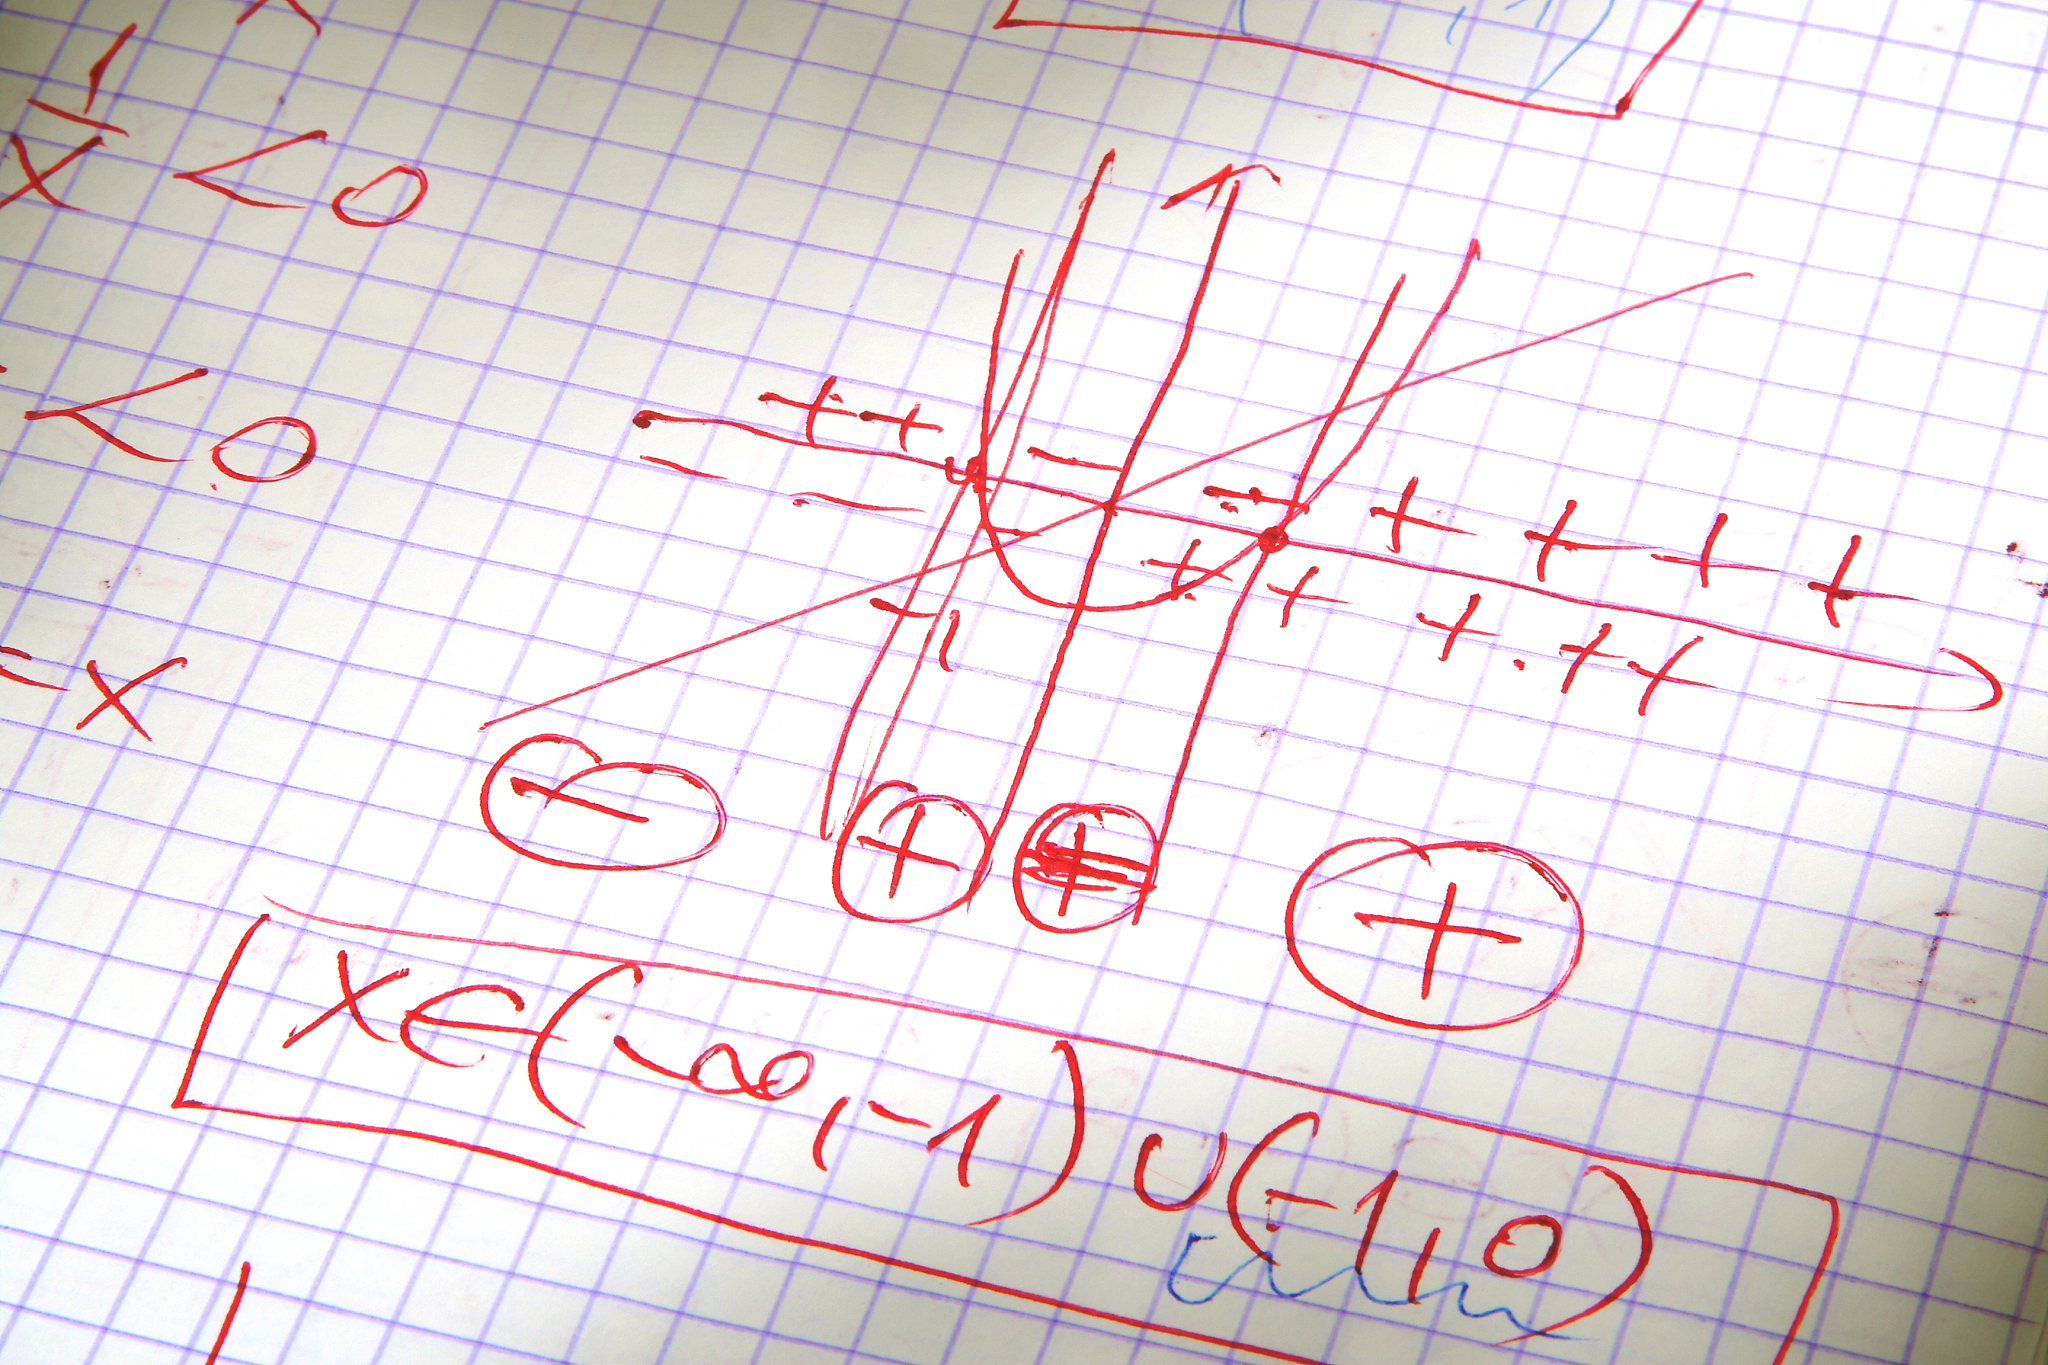 1
x < 0
< 0
= x
+ + − − + + + +
− − − + + + + +
-1
− + + +
x∈(-∞,-1)∪(-1,0)